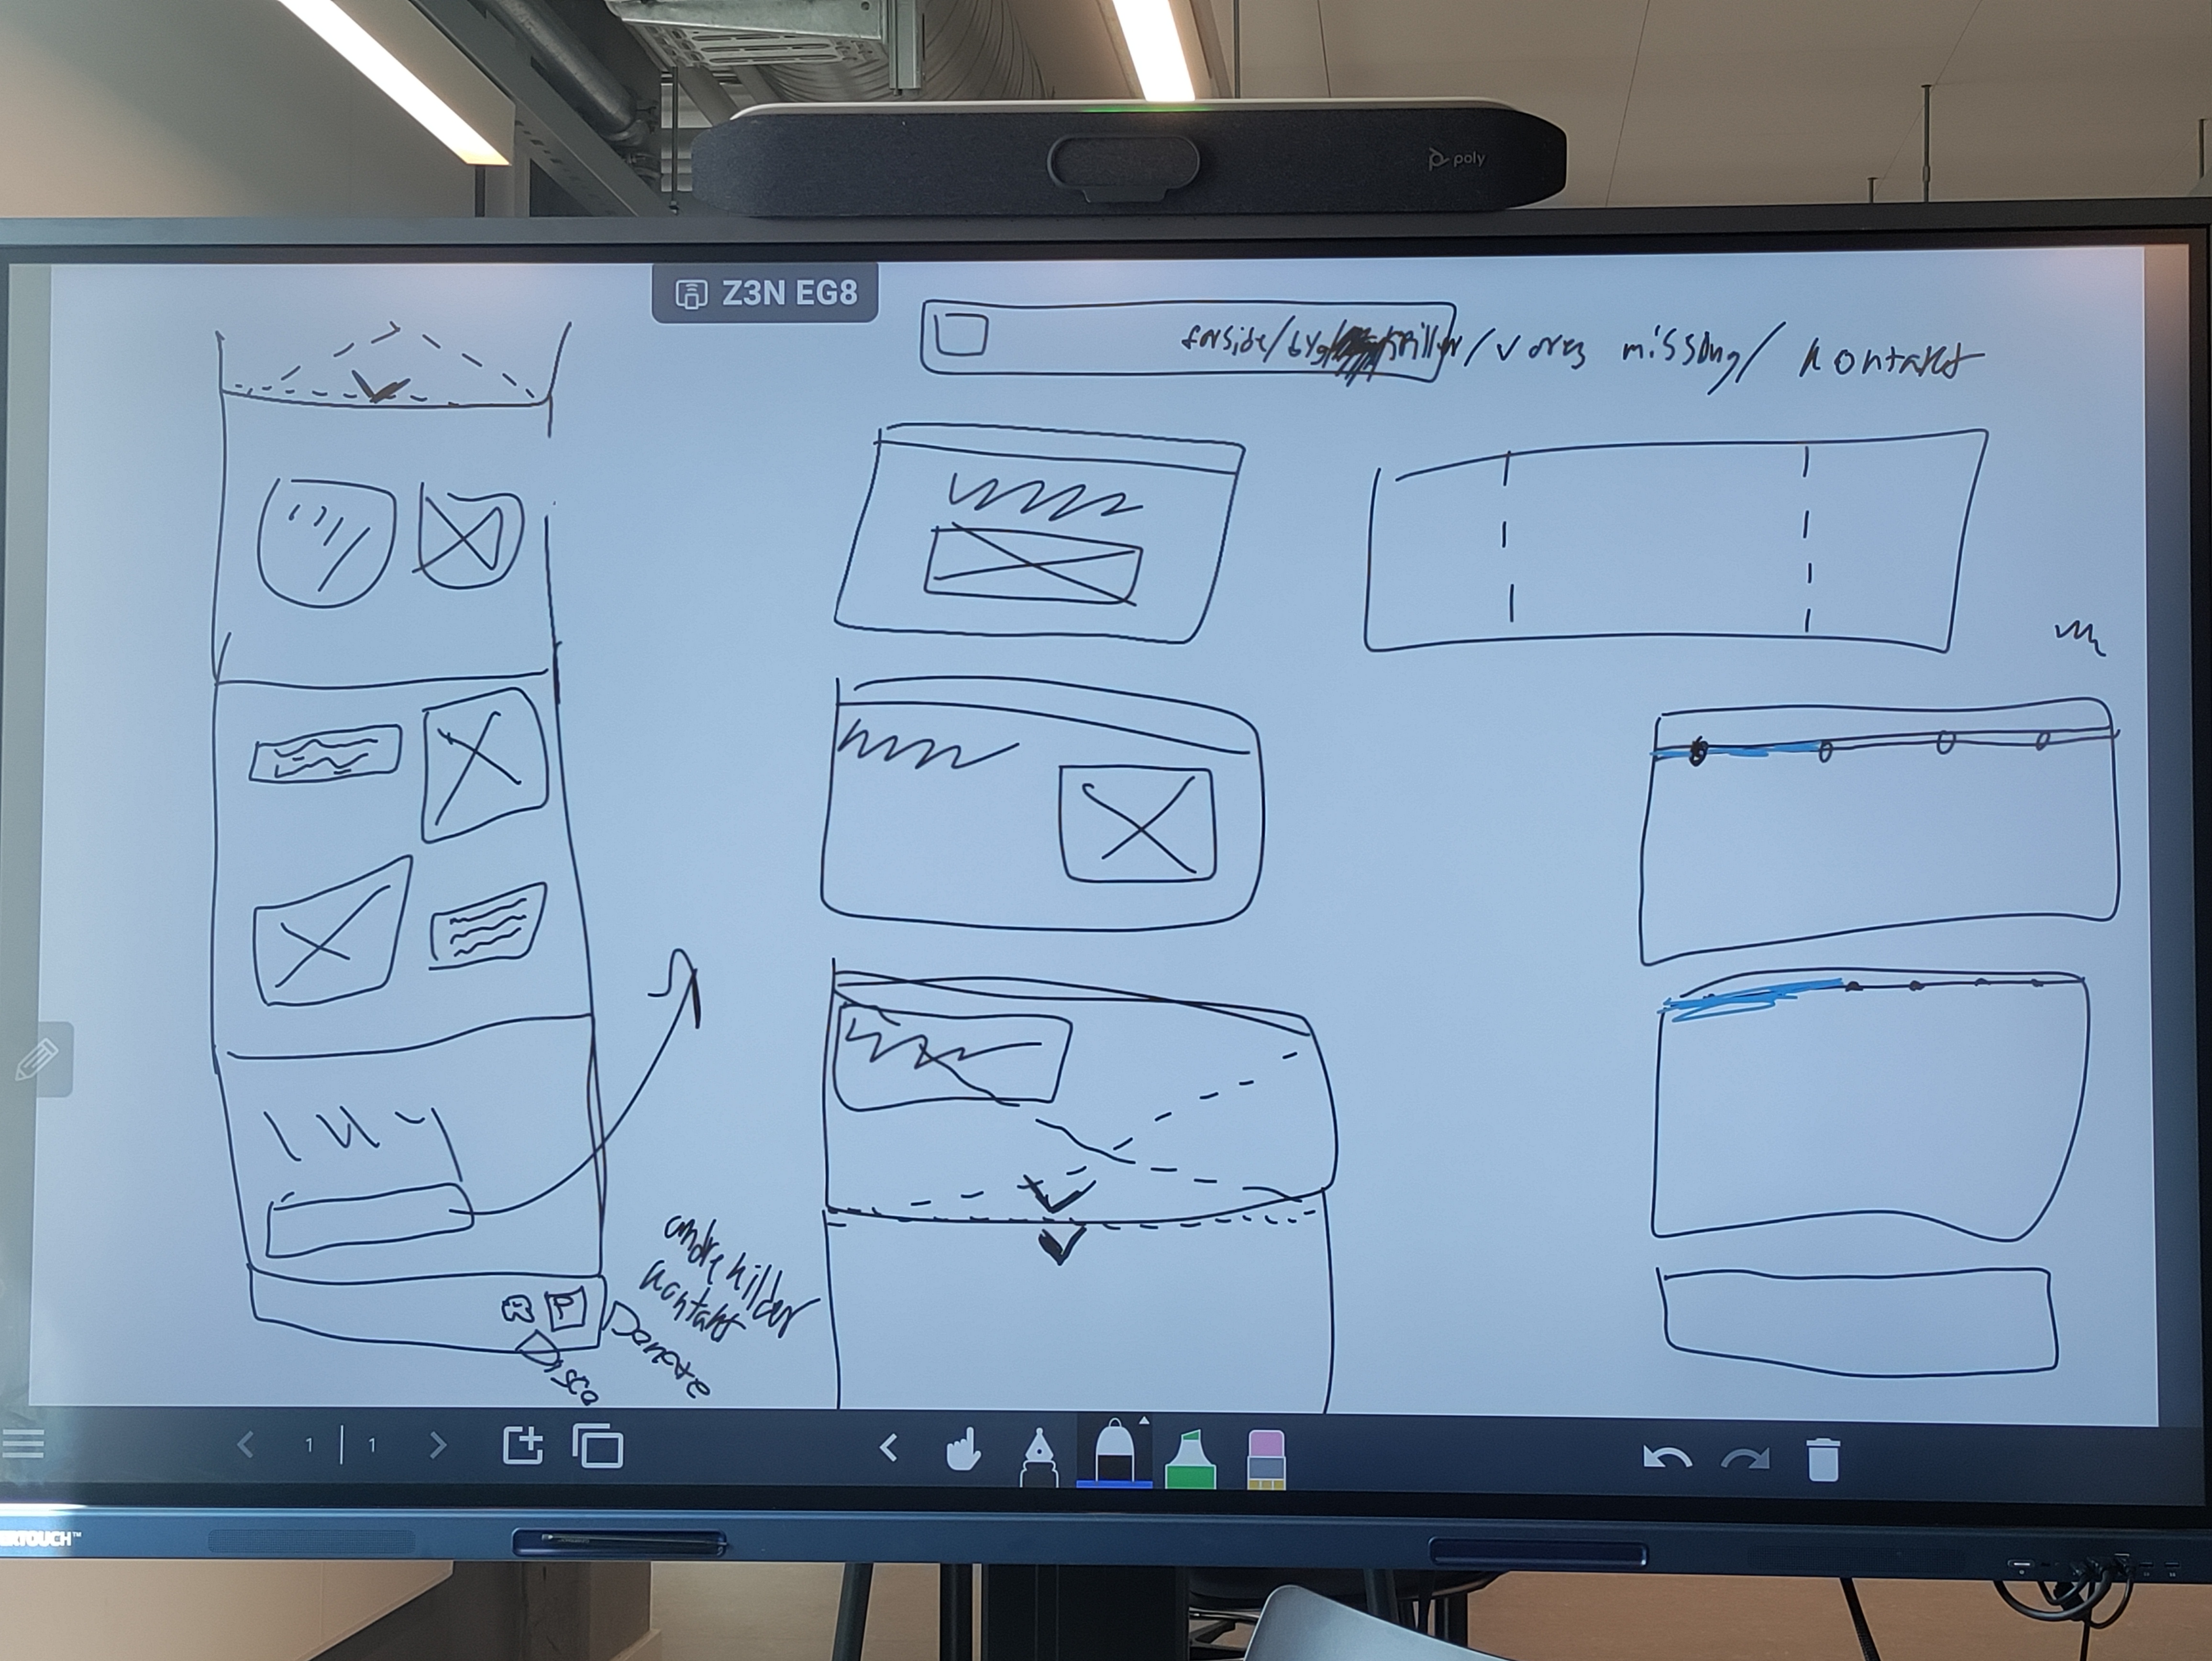 poly
Z3N EG8
forside/byg /vores missing/kontakt
andre kilder
kontakt
R P
Donate
Disco
1 | 1
TOUCH™